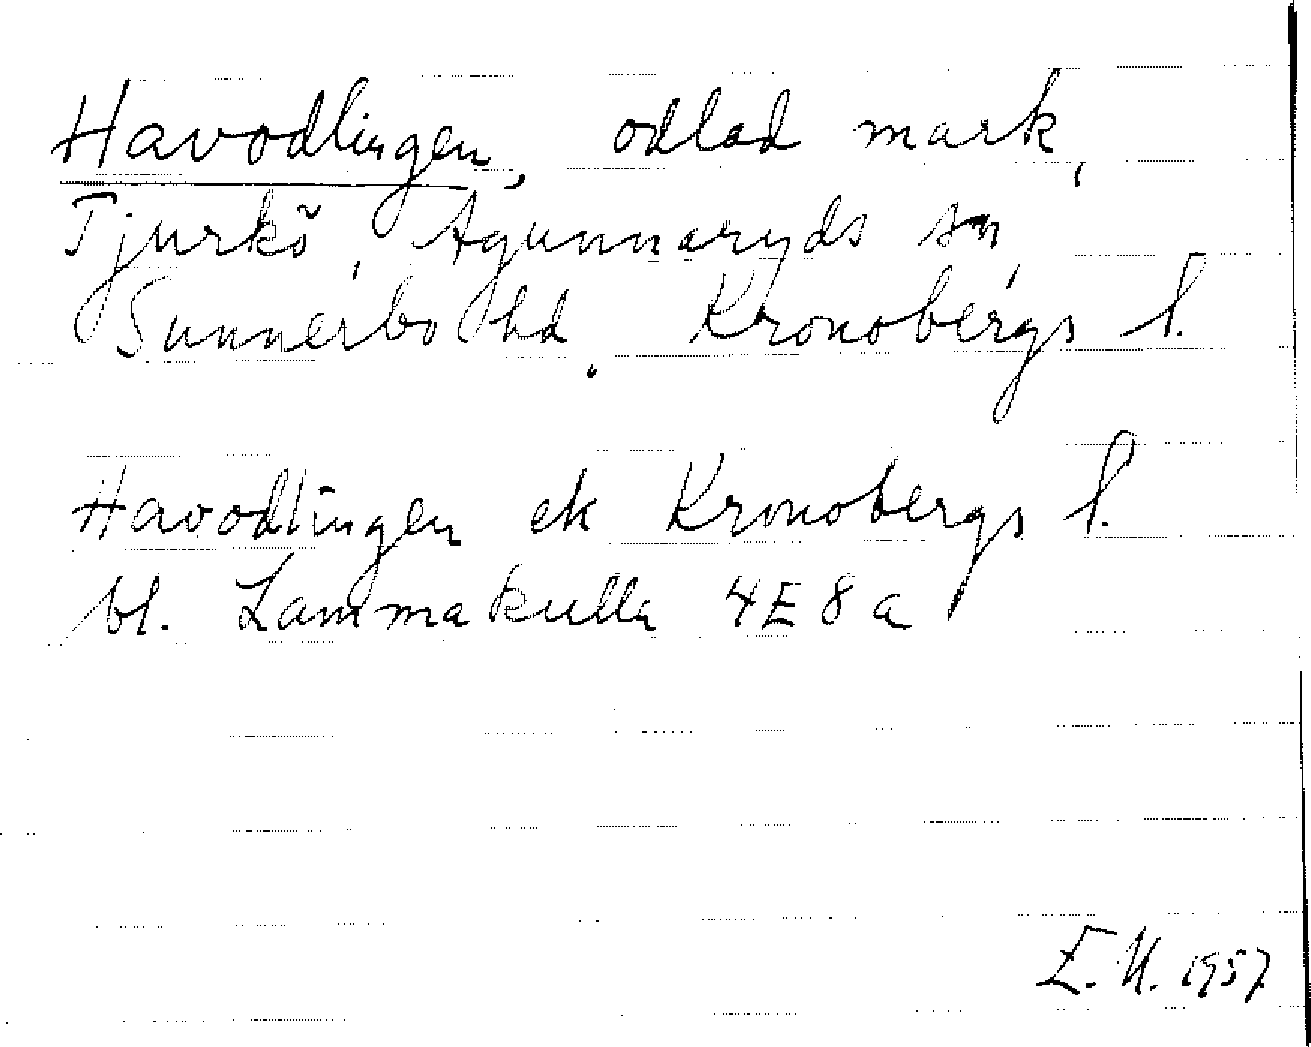 Havodlingen, odlad mark,
Tjurkö, Agunnaryds sn,
Sunnerbo hd. Kronobergs l.
Havodlingen ek Kronobergs l.
bl. Lammakulla 4E8a
E.U. 1957